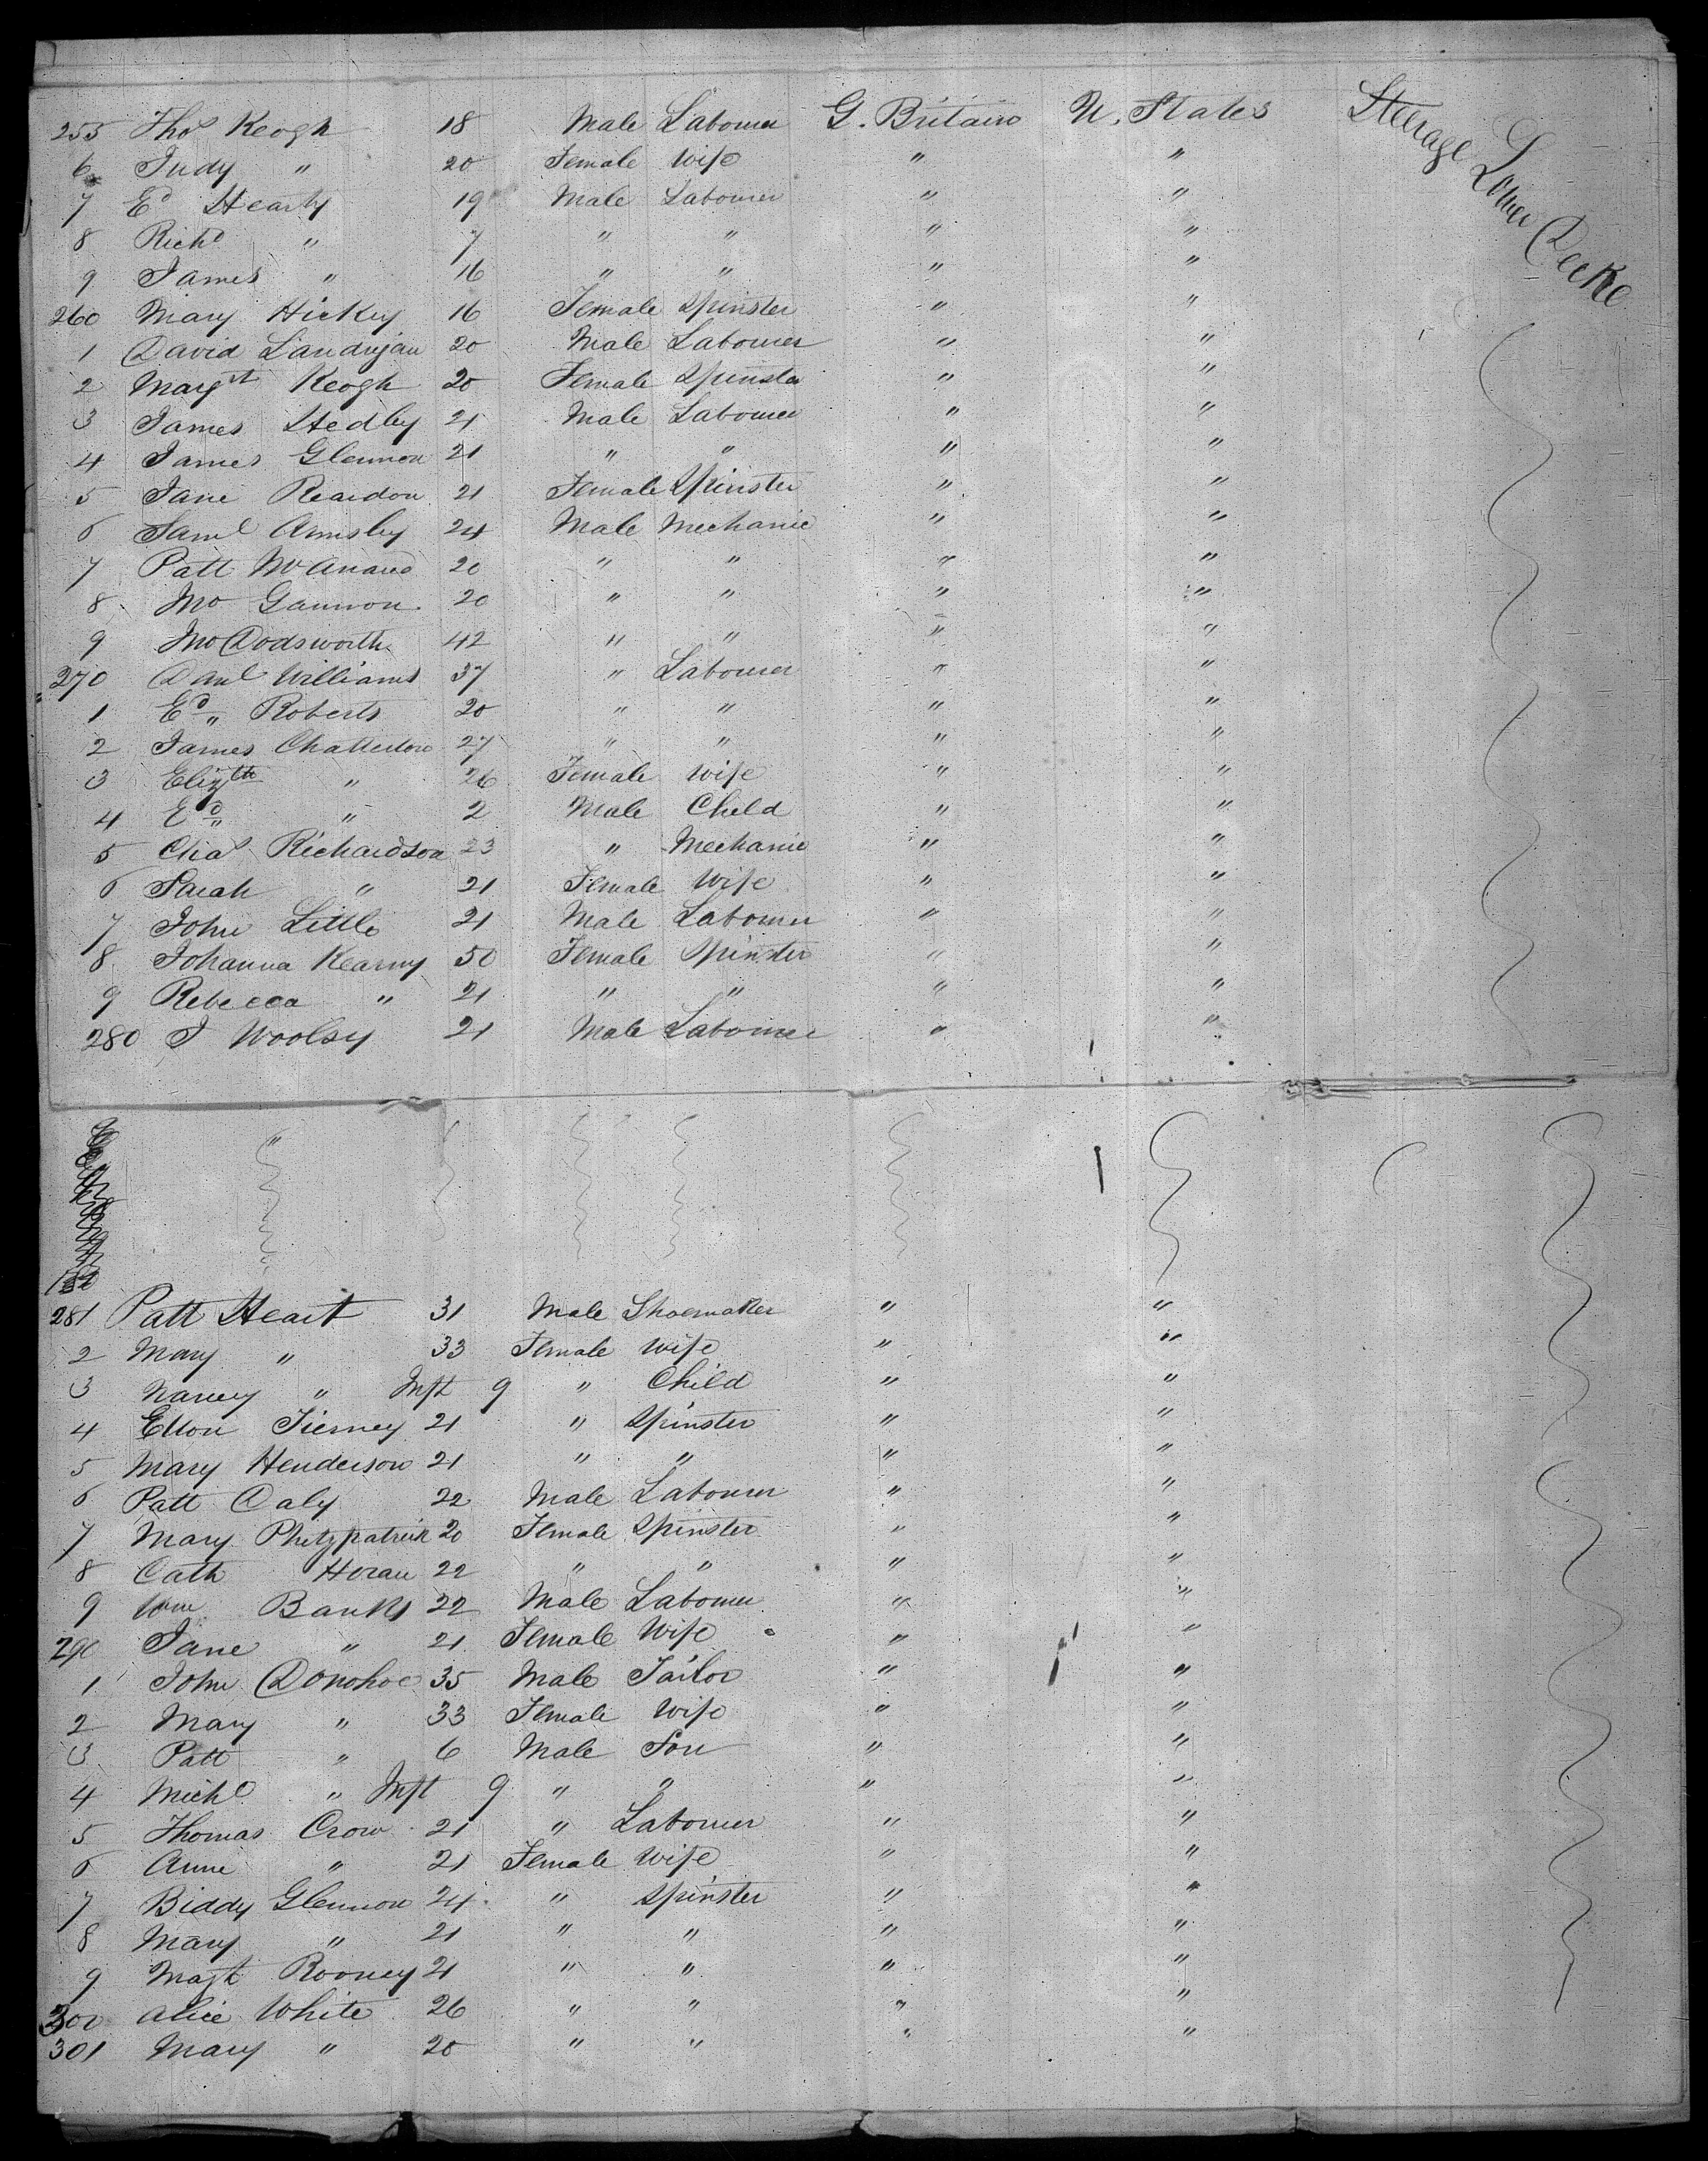 255 Thos Keogh 18 Male Labourer G. Britain U. States Steerage Lower Decke
6 Judy " 20 Female Wife " "
7 Ed Hearty 19 Male Labourer " "
8 Richd " 7 " " " "
9 James " 16 " " " "
260 Mary Hickey 16 Female Spinster " "
1 David Landrigan 20 Male Labourer " "
2 Margt Keogh 20 Female Spinster " "
3 James Hedley 21 Male Labourer " "
4 James Glennon 21 " " " "
5 Jane Reardon 21 Female Spinster " "
6 Saml Armsley 24 Male Mechanic " "
7 Patt 20 " " " "
8 Jno Gannon 20 " " " "
9 Jno Dodsworth 42 " " " "
270 Danl Williams 37 " Labourer " "
1 Ed " Roberts 20 " " " "
2 James Chatterton 27 " " " "
3 Elizth " 26 Female Wife " "
4 Ed " 2 Male Child " "
5 Chas Richardson 23 " Mechanic " "
6 Sarah " 21 Female Wife " "
7 John Little 21 Male Labourer " "
8 Johanna Kearny 50 Female Spinster " "
9 Rebecca " 21 " " " "
280 J Woolsy 21 Male Labourer " "
281 Patt Heart 31 Male Shoemaker " "
2 Mary " 33 Female Wife " "
3 Nancy " Inft 9 " Child " "
4 Ellon Tierney 21 " Spinster " "
5 Mary Henderson 21 " " " "
6 Patt Daly 22 Male Labourer " "
7 Mary Phitzpatrick 20 Female Spinster " "
8 Cath Horan 22 " " " "
9 Wm Banks 22 Male Labourer " "
290 Jane " 21 Female Wife " "
1 John Donohoe 35 Male Tailor " "
2 Mary " 33 Female Wife " "
3 Patt " 6 Male Son " "
4 Michl " Inft 9 " " " "
5 Thomas Crow 21 " Labourer " "
6 Anne " 21 Female Wife " "
7 Biddy Glennon 24 " Spinster " "
8 Mary " 21 " " " "
9 Magt Rooney 21 " " " "
300 Alice White 26 " " " "
301 Mary " 20 " " " "